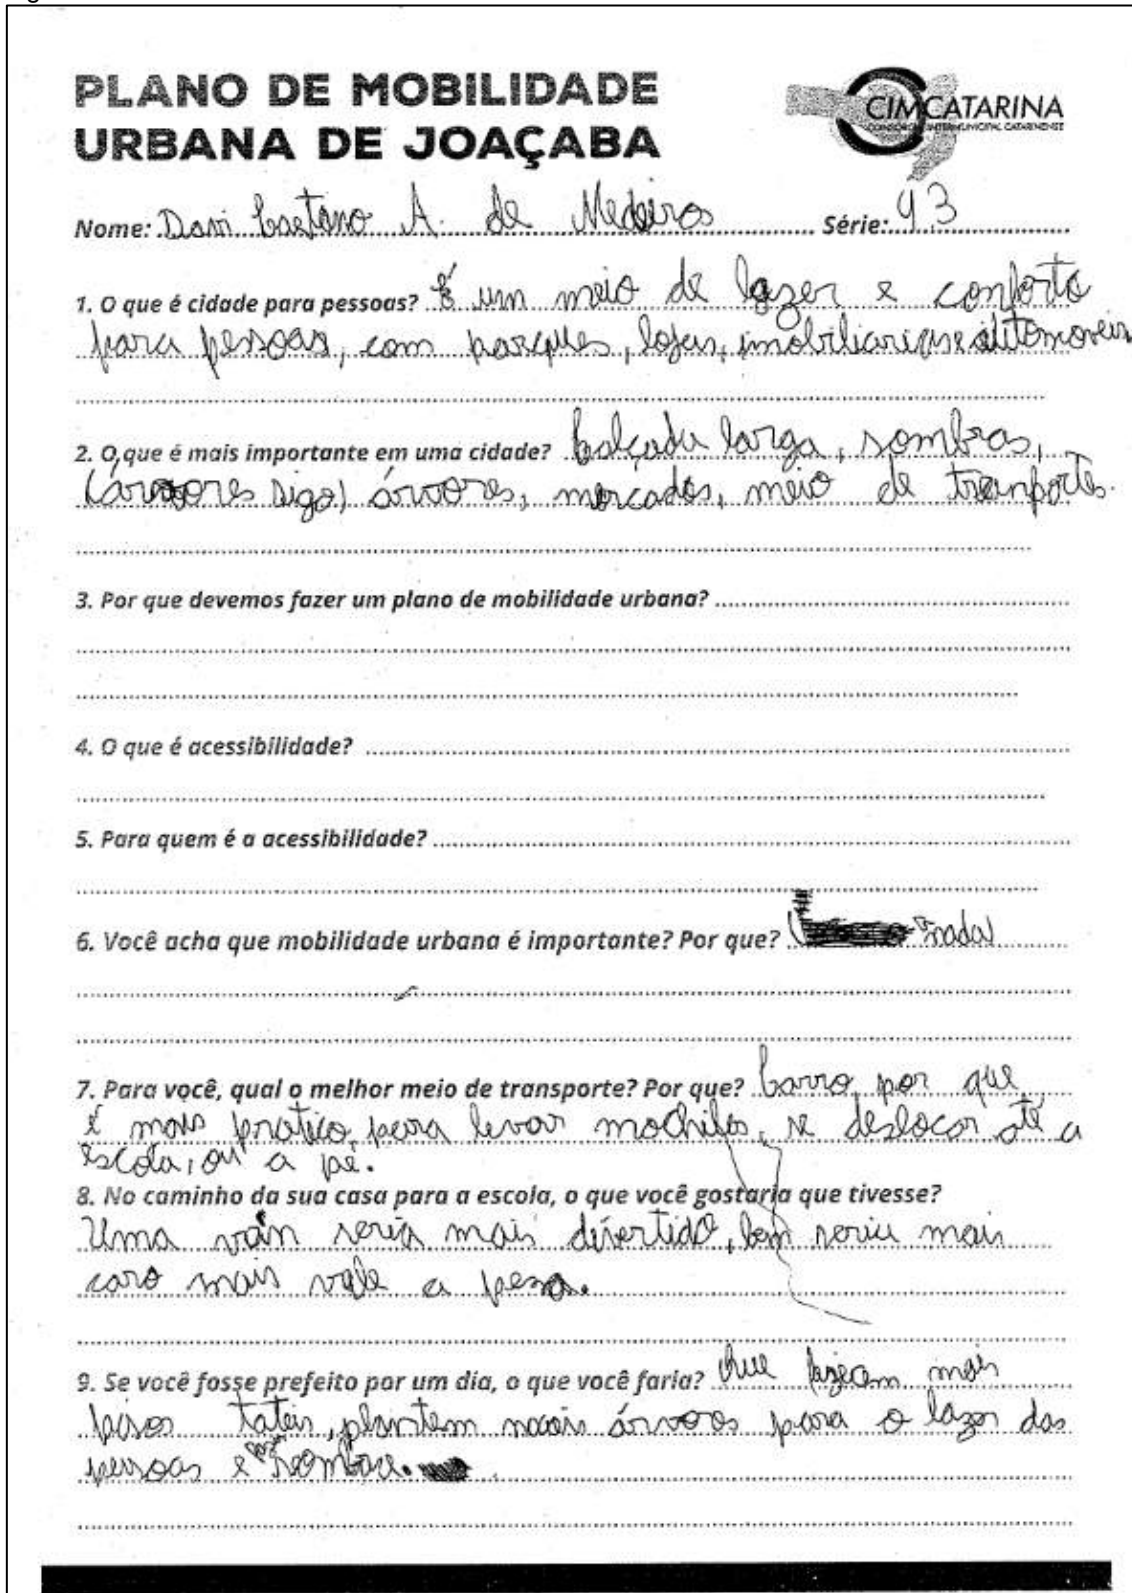 PLANO DE MOBILIDADE
URBANA DE JOAÇABA
CIMCATARINA
CONSÓRCIO INTERMUNICIPAL CATARINENSE
Nome: Davi Caetano A. de Medeiros Série: 93
1. O que é cidade para pessoas? É um meio de lazer e conforto
para pessoas, com parques, lojas, automoveis
2. O que é mais importante em uma cidade? Calçada larga, sombras,
(árvores digo) árvores, mercados, meio de tranportes.
3. Por que devemos fazer um plano de mobilidade urbana?
4. O que é acessibilidade?
5. Para quem é a acessibilidade?
6. Você acha que mobilidade urbana é importante? Por que? nada
7. Para você, qual o melhor meio de transporte? Por que? Carro, por que
é mais pratico, para levar mochilas, se deslocar até a
escola, ou a pé.
8. No caminho da sua casa para a escola, o que você gostaria que tivesse?
Uma van seria mais divertido, bem seria mais
caro mais vale a pena.
9. Se você fosse prefeito por um dia, o que você faria? Que fizecem mais
pisos tateis, plantem mais árvores para o lazer das
pessoas e